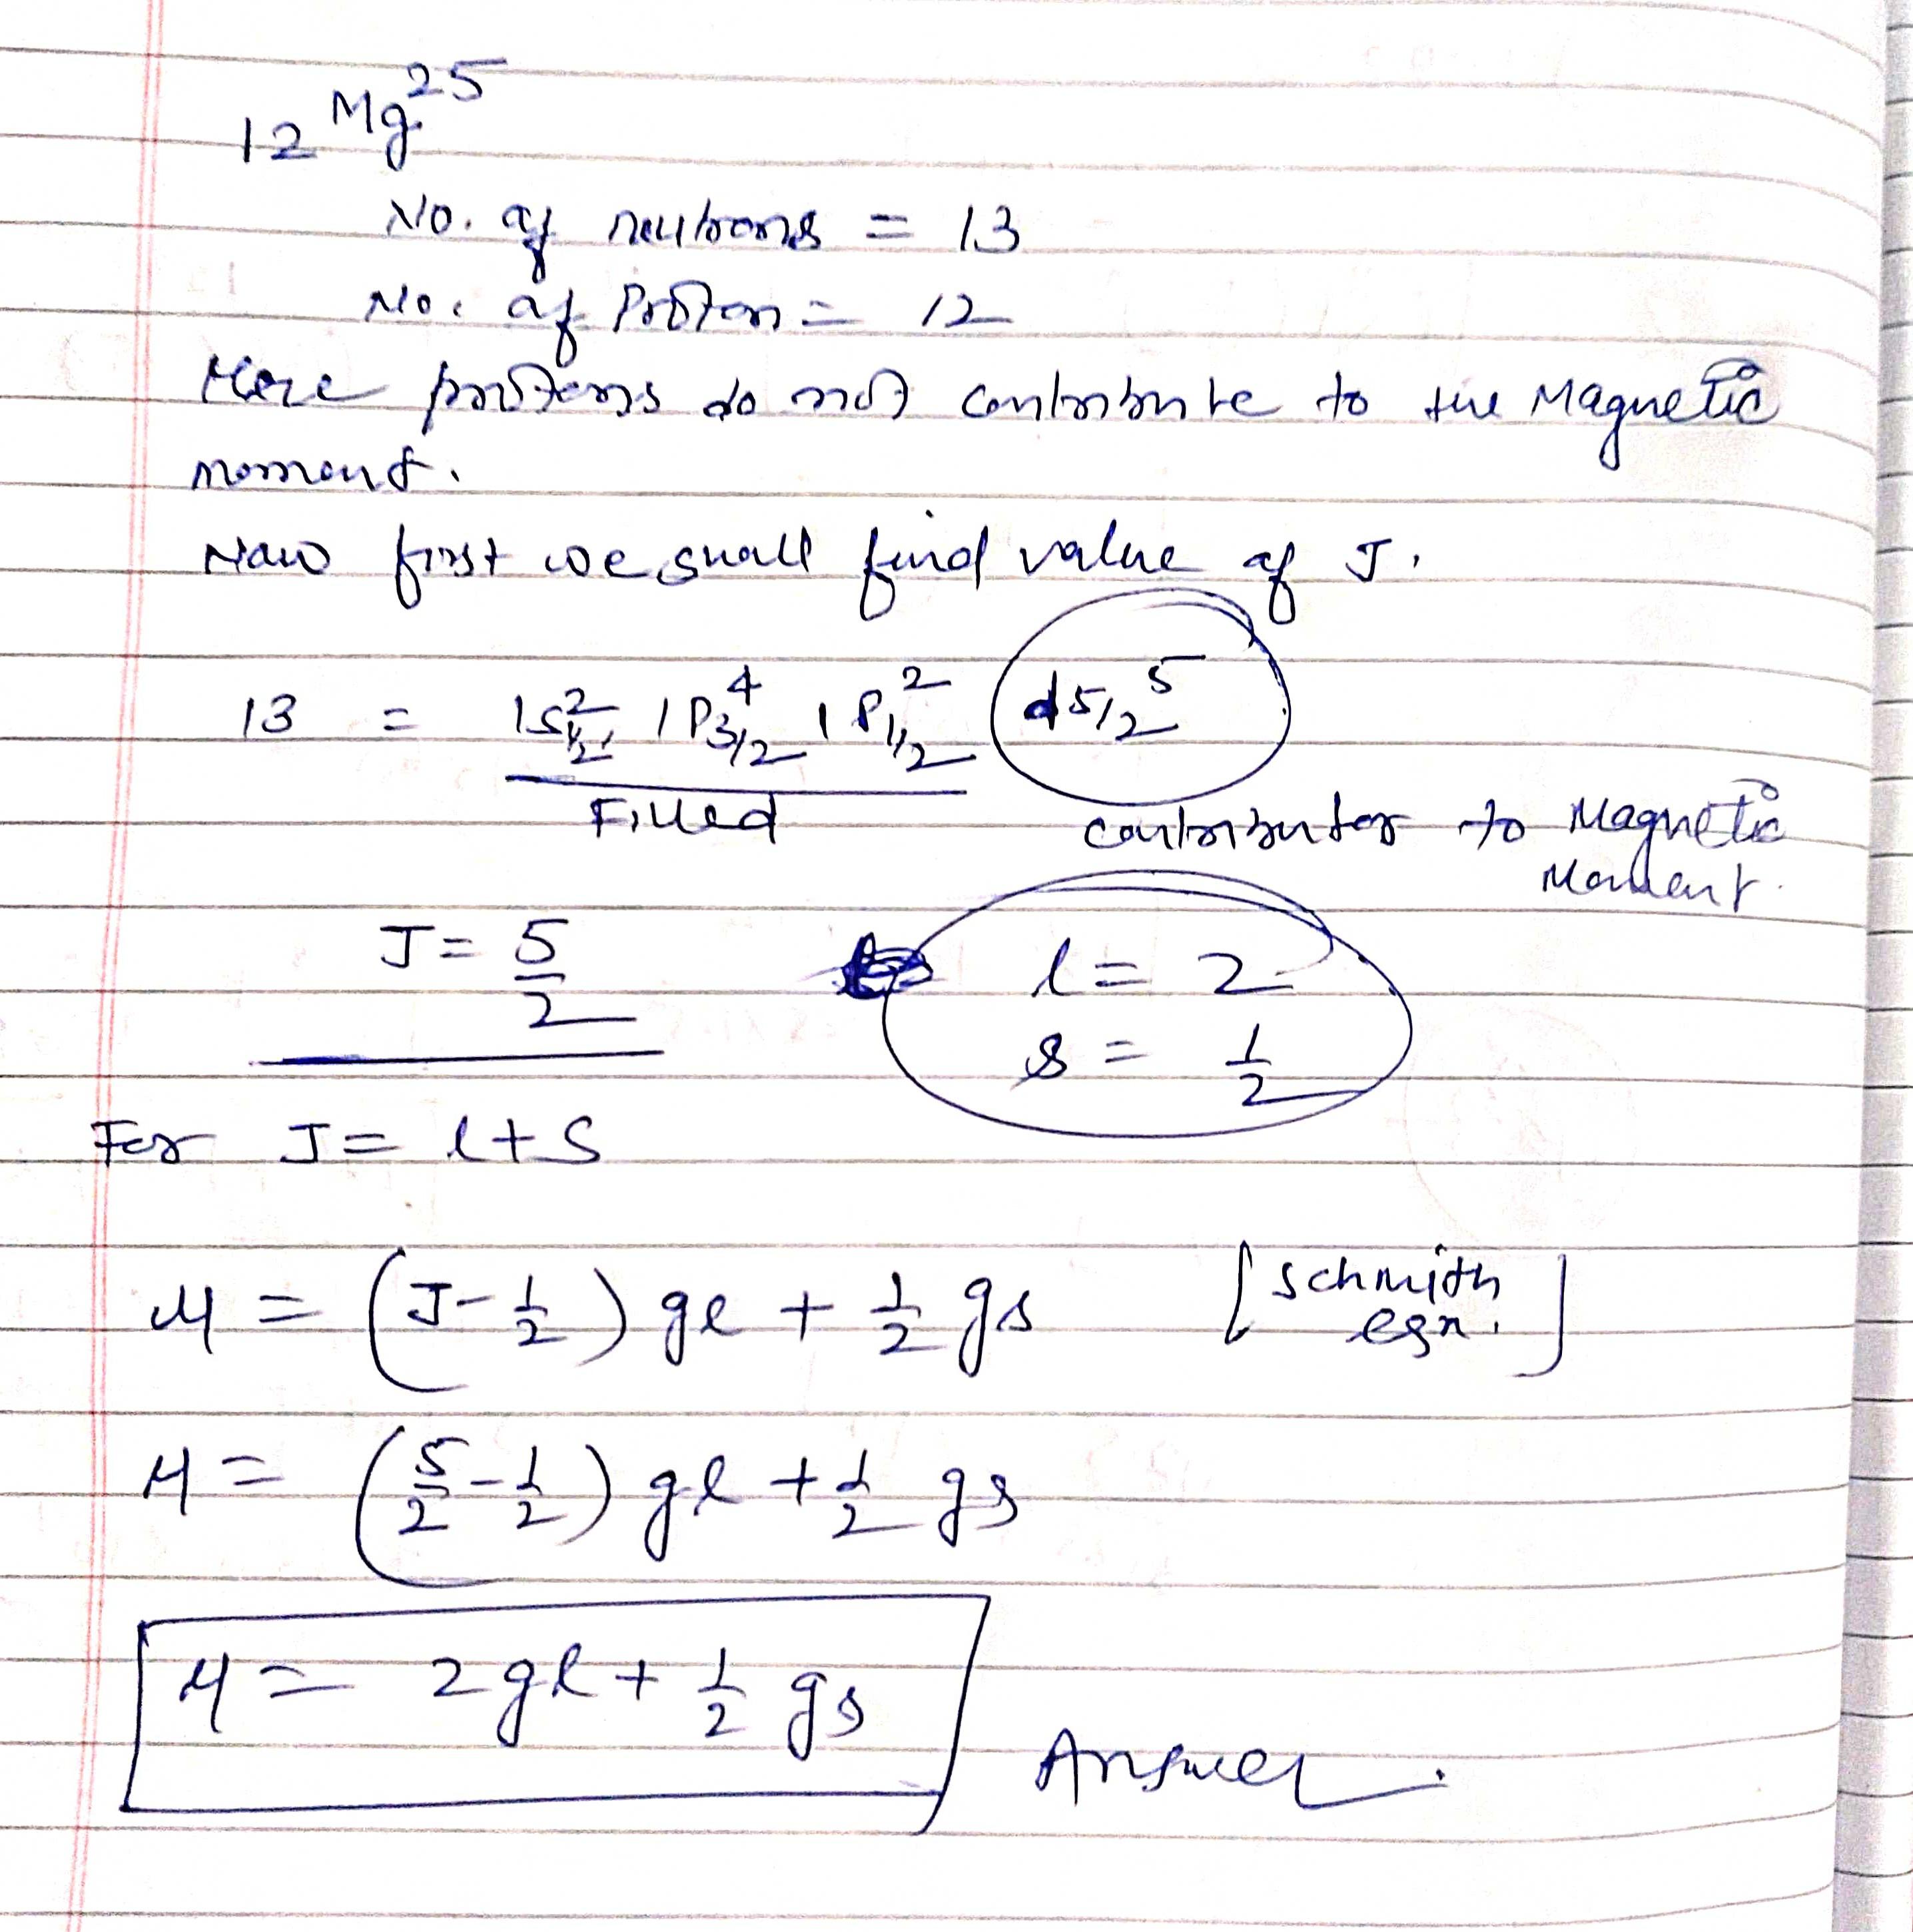 ₁₂Mg²⁵
No. of neutrons = 13
No. of Proton = 12
Here protons do not contribute to the Magnetic
moment.
Now first we shall find value of J.
13 = 1S½² 1P3/2⁴ 1P1/2² d5/2⁵
Filled contributor to Magnetic
Moment.
J = 5/2 l = 2
s = 1/2
For J = l + S
μ = (J - 1/2) gl + 1/2 gs [Schmith
eqn.]
μ = (5/2 - 1/2) gl + 1/2 gs
μ = 2gl + 1/2 gs
Answer.